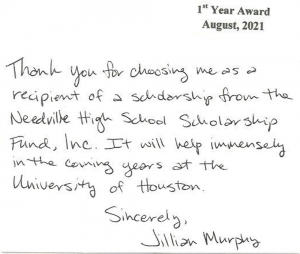 1st Year Award
August, 2021
Thank you for choosing me as a
recipient of a scholarship from the
Needville High School Scholarship
Fund, Inc. It will help immensely
in the coming years at the
University of Houston.
Sincerely,
Jillian Murphy